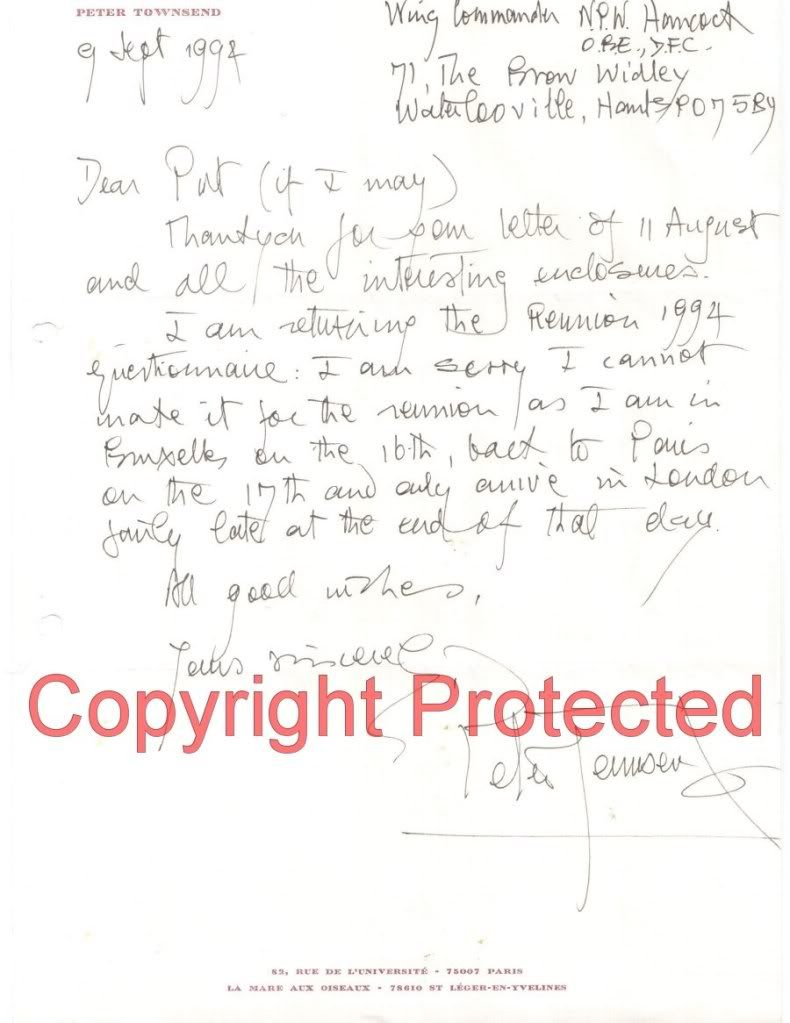 PETER TOWNSEND
9 Sept 1994
Wing Commander N.P.W. Hancock
O.B.E., D.F.C.
71, The Brow Widley
Waterlooville, Hants PO7 5BY
Dear Pat (if I may)
Thankyou for your letter of 11 August
and all the interesting enclosures.
I am returning the Reunion 1994
questionnaire: I am sorry I cannot
make it for the reunion as I am in
Bruxelles on the 16th, back to Paris
on the 17th and only arrive in London
fairly late at the end of that day.
All good wishes,
Yours sincerely
Copyright Protected
Peter Townsend
82, RUE DE L'UNIVERSITÉ - 75007 PARIS
LA MARE AUX OISEAUX - 78610 ST LÉGER-EN-YVELINES